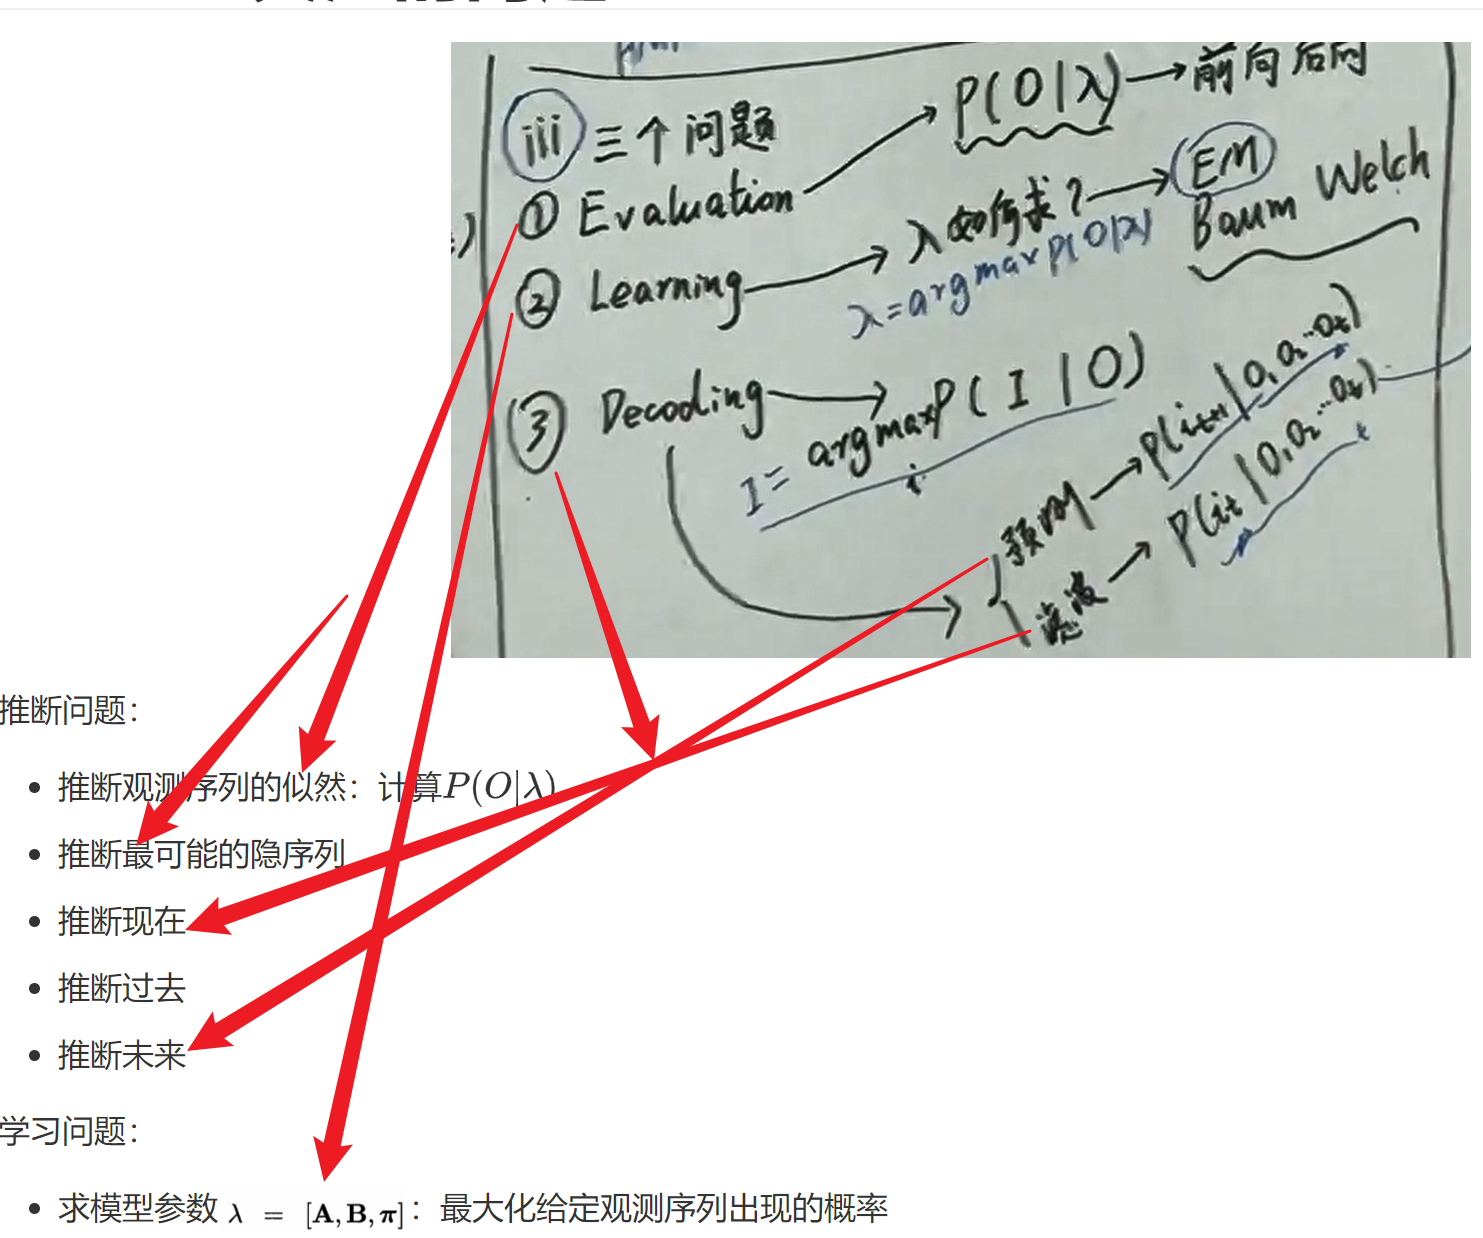 iii 三个问题
① Evaluation → P(O|λ) → 前向后向
② Learning → λ如何求? → EM
Baum Welch
λ=argmax P(O|λ)
③ Decoding → I = argmax P(I|O)
i
预测 → P(it+1|O1 O2 … Ot)
滤波 → P(it|O1 O2 … Ot)
t
推断问题:
• 推断观测序列的似然:计算P(O|λ)
• 推断最可能的隐序列
• 推断现在
• 推断过去
• 推断未来
学习问题:
• 求模型参数 λ = [A, B, π]:最大化给定观测序列出现的概率